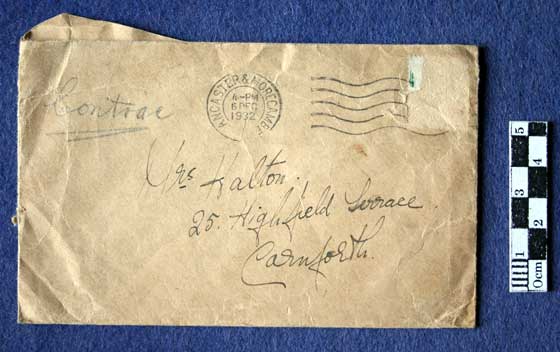 Contrac
LANCASTER & MORECAMBE
4-PM
6 DEC
1932
Mrs Halton.
25. Highfield Terrace.
Carnforth.
5
4
3
2
1
0cm